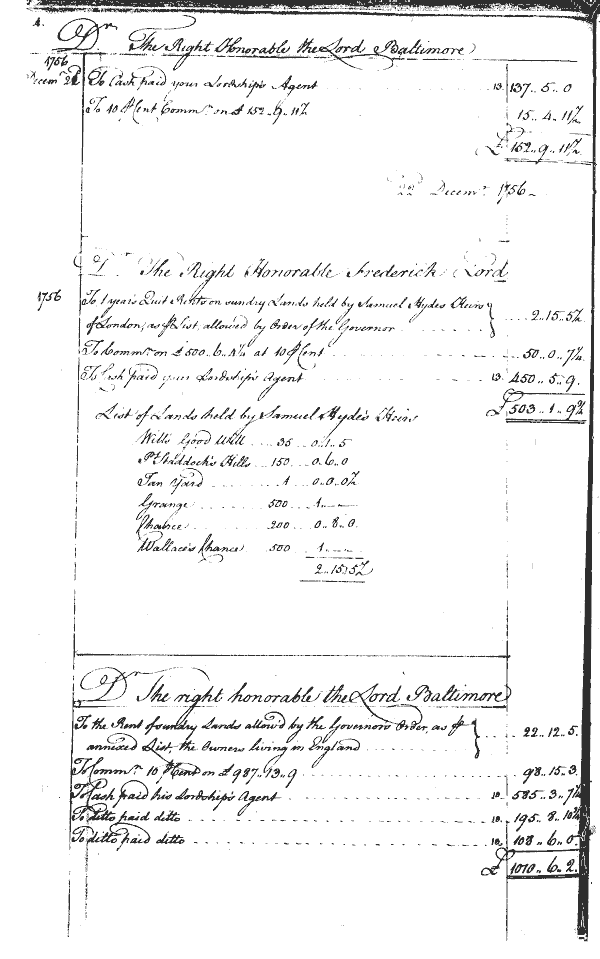 4.
Dr. The Right Honorable the Lord Baltimore
1756
Decemr. 22 To Cash paid your Lordship's Agent 13 137.. 5.. 0
To 10 ⅌ Cent Commn. on £ 152..9..11½ 15.. 4.. 11½
£ 152.. 9.. 11½
22d Decemr. 1756
Dr. The Right Honorable Frederick Lord
1756 To 1 year's Quit Rents on sundry Lands held by Samuel Hydes Heirs
of London, as ⅌ List, allowed by Order of the Governor 2..15..5½
To Commn. on £ 500..6..4½ at 10 ⅌ Cent 50..0..7½
To Cash paid your Lordship's Agent 13 450..5..9.
£ 503..1..9¾
List of Lands held by Samuel Hyde's Heirs
Wills Good Will 35 0..1..5
Pt. Staddock's Hills 150 0..6..0
Tan Yard 1 0..0..0½
Grange 500 1..—..—
Chance 200 0..8..0
Wallace's Chance 500 1..—..—
2..15..5½
Dr. The right honorable the Lord Baltimore
To the Rent of sundry Lands allowed by the Governors Order, as ⅌
annexed List, the Owners living in England 22..12..5.
To Commn. 10 ⅌ Cent on £ 987..13..9 98..15..3.
To Cash paid his Lordship's Agent 10. 585..3..7½
To ditto paid ditto 10. 195..8..10¾
To ditto paid ditto 10. 108..6..0.
£ 1010..6..2.